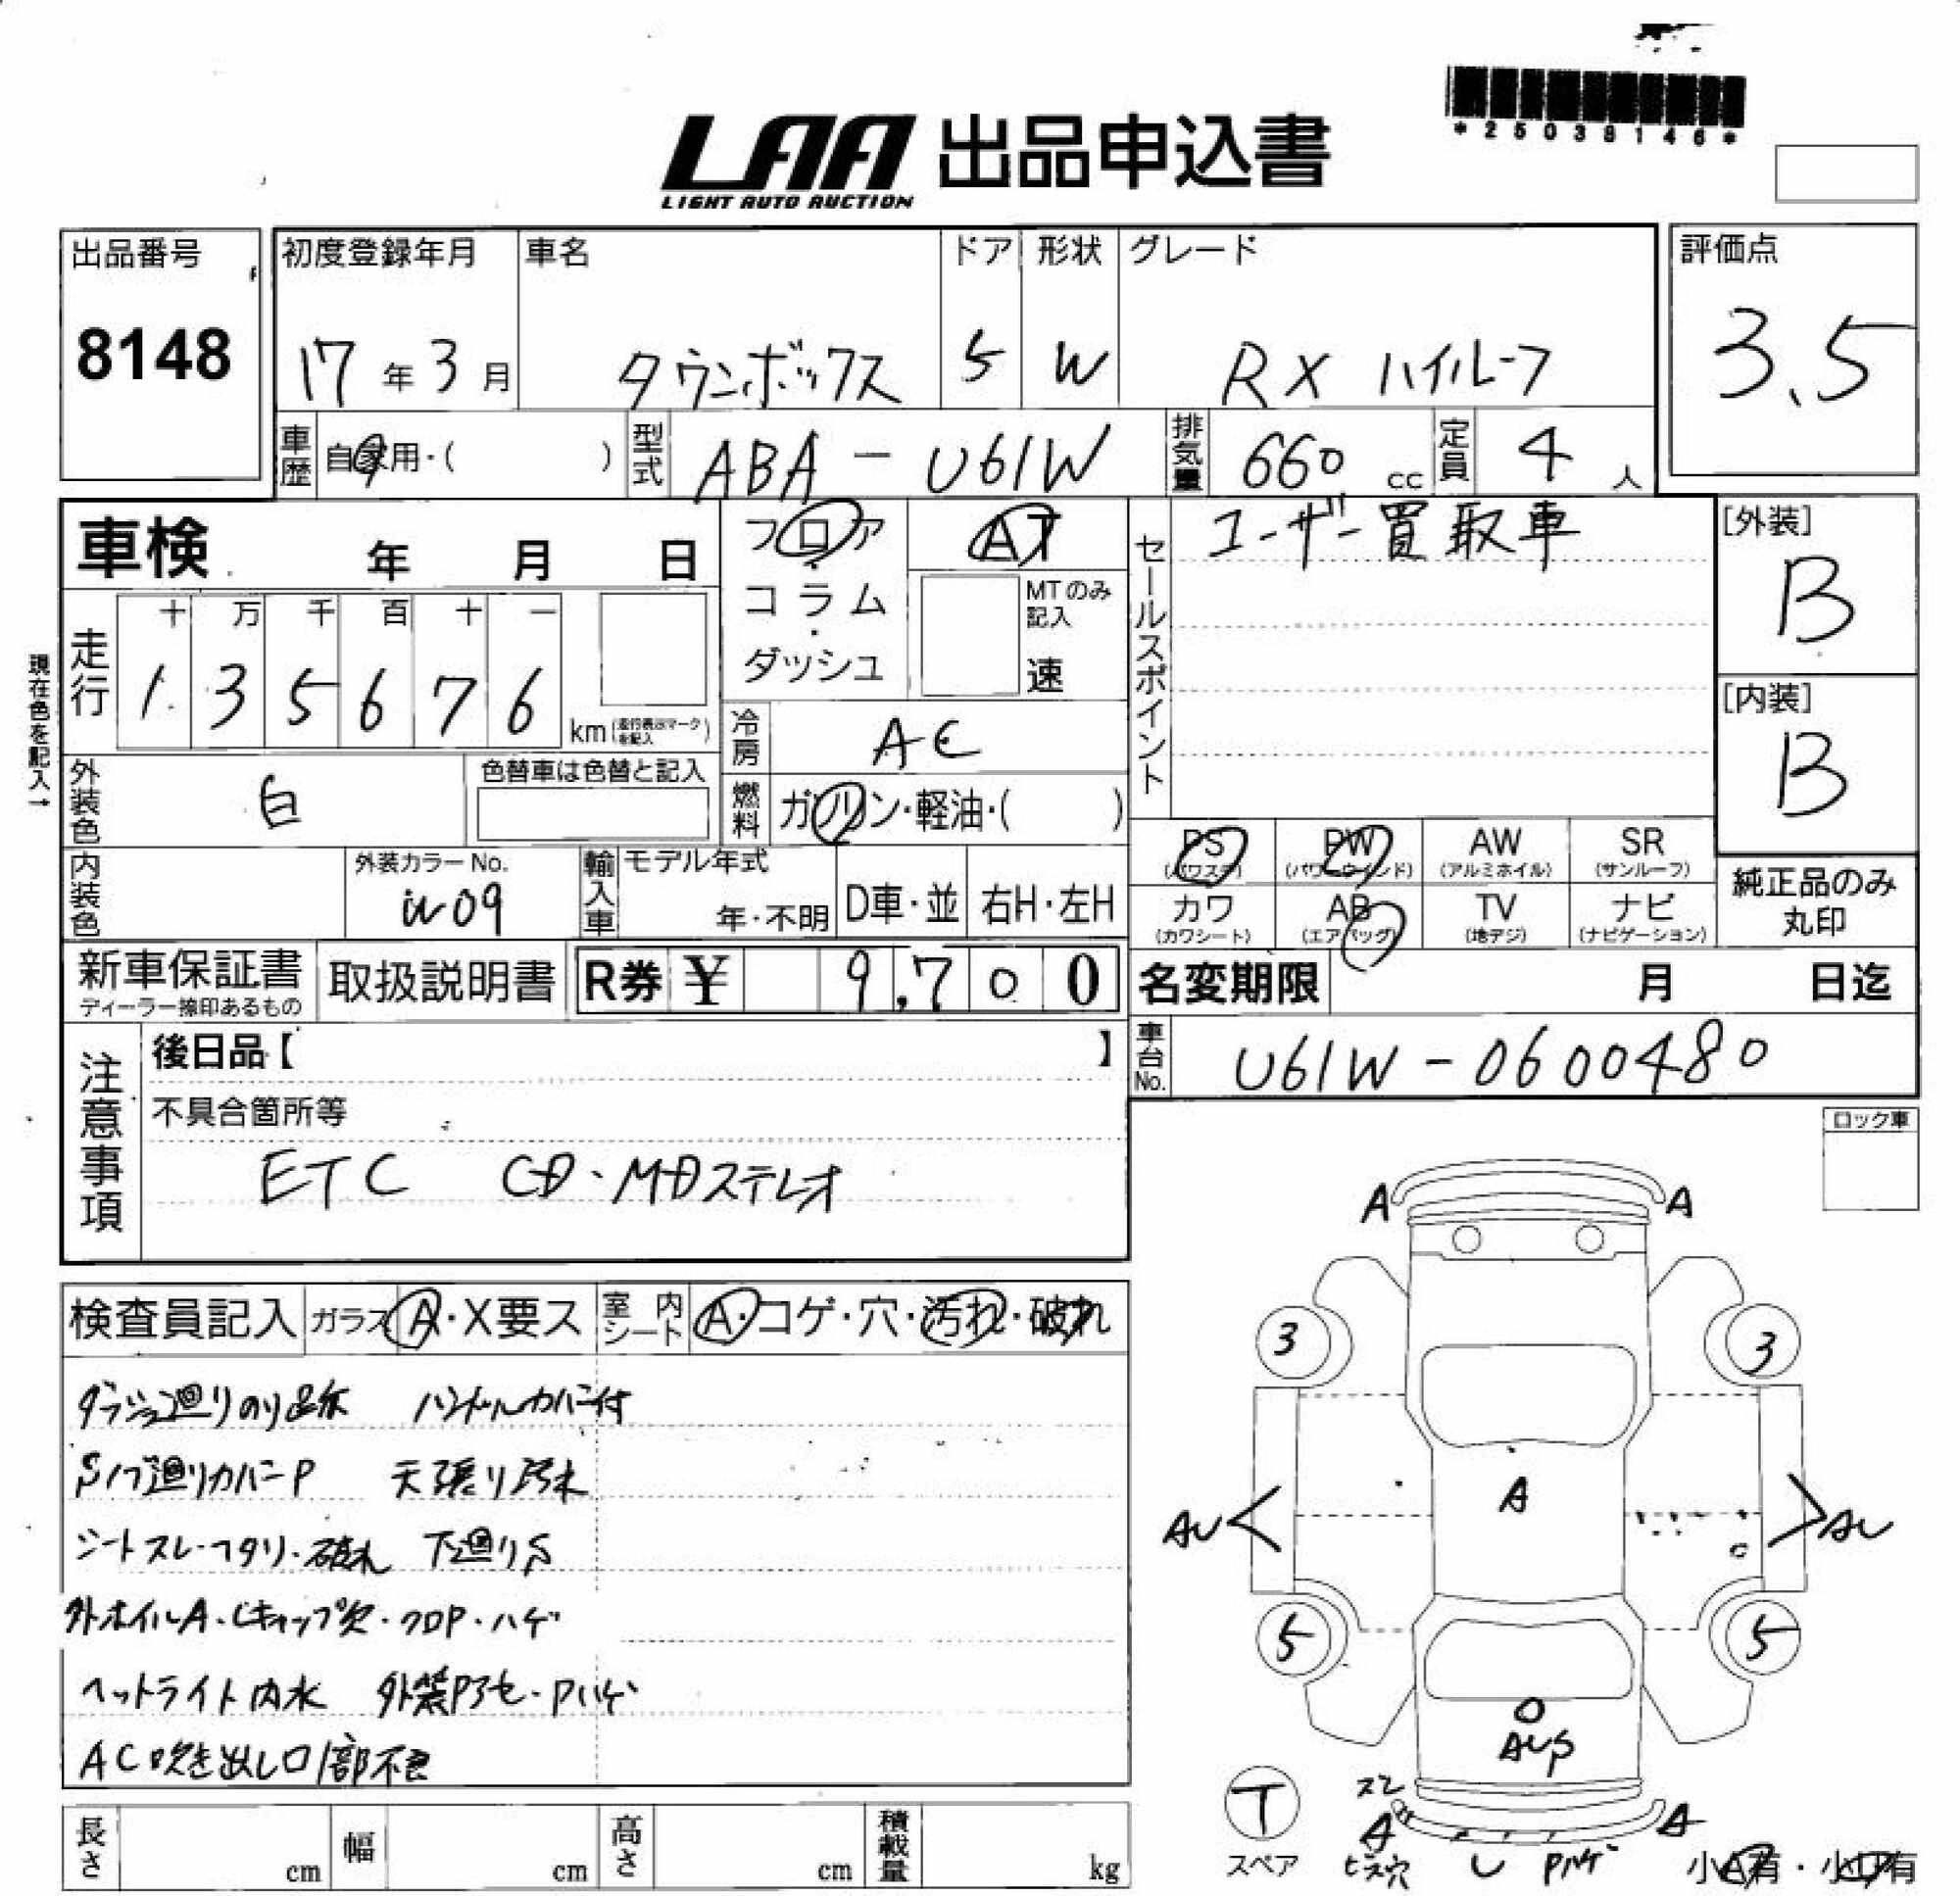 *25038146*
LAA 出品申込書
LIGHT AUTO AUCTION
出品番号
8148
初度登録年月
17年3月
車名
タウンボックス
ドア
5
形状
W
グレード
RX ハイルーフ
評価点
3.5
車歴 自家用・( )
型式 ABA-U61W
排気量 660 cc
定員 4 人
車検 年 月 日
フロア・コラム・ダッシュ
AT
MTのみ記入
速
セールスポイント
ユーザー買取車
[外装]
B
[内装]
B
現在色を記入→
走行
十 万 千 百 十 一
1 3 5 6 7 6
km(走行表示マークを記入)
冷房 AC
外装色 白
色替車は色替と記入
燃料 ガソリン・軽油・( )
内装色
外装カラーNo.
W09
輸入車
モデル年式
年・不明
D車・並
右H・左H
PS
(パワステ)
PW
(パワーウインド)
AW
(アルミホイル)
SR
(サンルーフ)
カワ
(カワシート)
AB
(エアバッグ)
TV
(地デジ)
ナビ
(ナビゲーション)
純正品のみ
丸印
新車保証書
ディーラー捺印あるもの
取扱説明書
R券 ¥ 9,700
名変期限 月 日迄
車台No. U61W-0600480
注意事項
後日品【 】
不具合箇所等
ETC CD・MDステレオ
ロック車
検査員記入
ガラス A・X要ス
室内シート A・コゲ・穴・汚れ・破れ
ダッシュ廻りのり跡 ハンドルカバー付
Sノブ廻りカバーP 天張り汚れ
シートスレ・ヘタリ・破れ 下廻りS
外ホイルA・Cキャップ欠・クロP・ハゲ
ヘッドライト内水 外装Pアセ・Pハゲ
AC吹き出し口1部不良
A A
3 3
A
AU AU
C
5 5
AUS
T
スペア
スレ
A A
ビス穴 U Pハゲ
小A有・小U有
長さ cm
幅 cm
高さ cm
積載量 kg